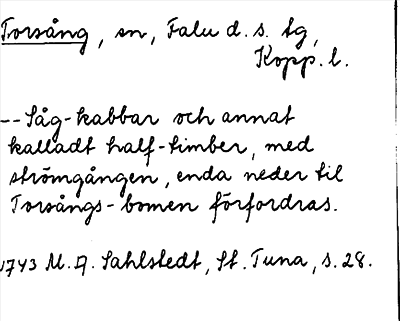 Torsång, sn, Falu d. s. tg,
Kopp. l.
-- Såg-kabbar och annat
kalladt half-timber, med
strömgången, enda neder til
Torsångs-bomen förfordras.
1743 M. A. Sahlstedt, St. Tuna, s. 28.